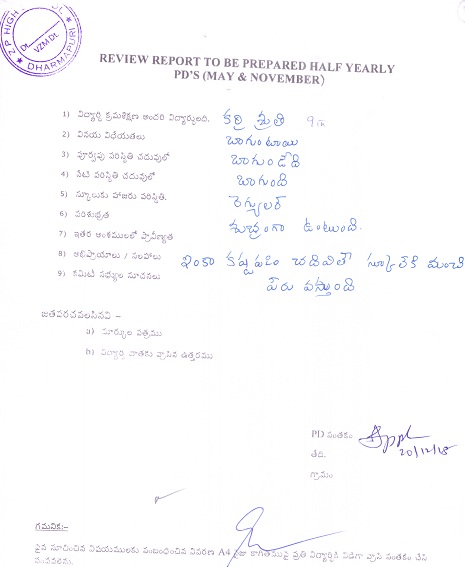 Z P HIGH
DL
VZM DL
DHARMAPURI
REVIEW REPORT TO BE PREPARED HALF YEARLY
PD'S (MAY & NOVEMBER)
1) విద్యార్థి క్రమశిక్షణ అందరి విద్యార్థులది. కర్రి శ్రుతి 9 వ
2) వినయ విధేయతలు బాగుంటాయి
3) పూర్వపు పరిస్థితి చదువులో బాగుండేది
4) నేటి పరిస్థితి చదువులో బాగుంది
5) స్కూలుకు హాజరు పరిస్థితి. రెగ్యులర్
6) పరిశుభ్రత శుభ్రంగా ఉంటుంది.
7) ఇతర అంశములలో ప్రావీణ్యత
8) అభిప్రాయాలు / సలహాలు ఇంకా కష్టపడి చదివితే స్కూల్‌కి మంచి
9) కమిటీ సభ్యుల సూచనలు పేరు వస్తుంది
జతపరచవలసినవి –
a) మార్కుల పత్రము
b) విద్యార్థి దాతకు వ్రాసిన ఉత్తరము
PD సంతకం
తేది. 20/12/18
గ్రామం
గమనిక:-
పైన సూచించిన విషయములకు సంబంధించిన వివరణ A4 సైజు కాగితముపై ప్రతి విద్యార్థికి విడిగా వ్రాసి సంతకం చేసి
పంపవలెను.